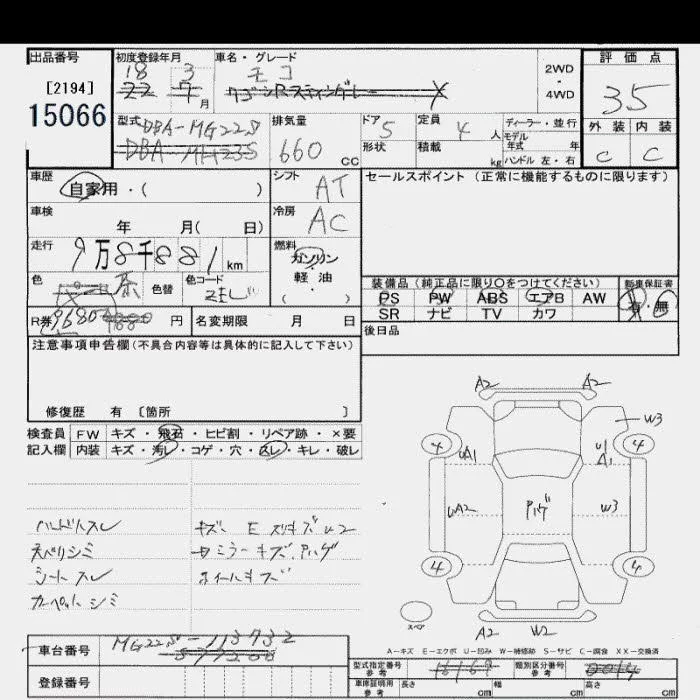 出品番号 初度登録年月 車名・グレード 評価点
[2194] 18 3 モコ 2WD
22 7 月 ワゴンRスティングレー ・
15066 4WD 35
型式 DBA-MG22S 排気量 ドア 5 定員 4 人 ディーラー・並行 外装 内装
DBA-MH23S 660 cc 形状 積載 kg モデル年式 年 C C
ハンドル 左・右
車歴 シフト セールスポイント (正常に機能するものに限ります)
自家用・( ) AT
車検 冷房
年 月( 日) AC
走行 燃料
9万8千881km ガソリン
色 茶 色替 色コード ZEJ 軽油
( )
装備品 (純正品に限り○をつけてください) 新車保証書
PS PW ABS エアB AW 有・無
SR ナビ TV カワ
R券 9680 円 名変期限 月 日 後日品
注意事項申告欄 (不具合内容等は具体的に記入して下さい)
修復歴 有 〔箇所 〕
検査員 FW キズ・飛石・ヒビ割・リペア跡・×要
記入欄 内装 キズ・汚レ・コゲ・穴・スレ・キレ・破レ
A2 A2
W3
4 UA1 U1 A1 4
UA2 Pハゲ W3
4 4
スペア
A2 W2
ハンドルスレ キズ E スリキズ U2
天ベリシミ サミラーキズ.Pハゲ
シートスレ ホイールキズ
カーペットシミ
A-キズ E-エクボ U-凹み W-補修跡 S-サビ C-腐食 XX-交換済
車台番号 MG22S-113732
577200
登録番号
型式指定番号 参考 16169 類別区分番号 参考 0014
車庫証明用 参考 長さ cm 幅 cm 高さ cm